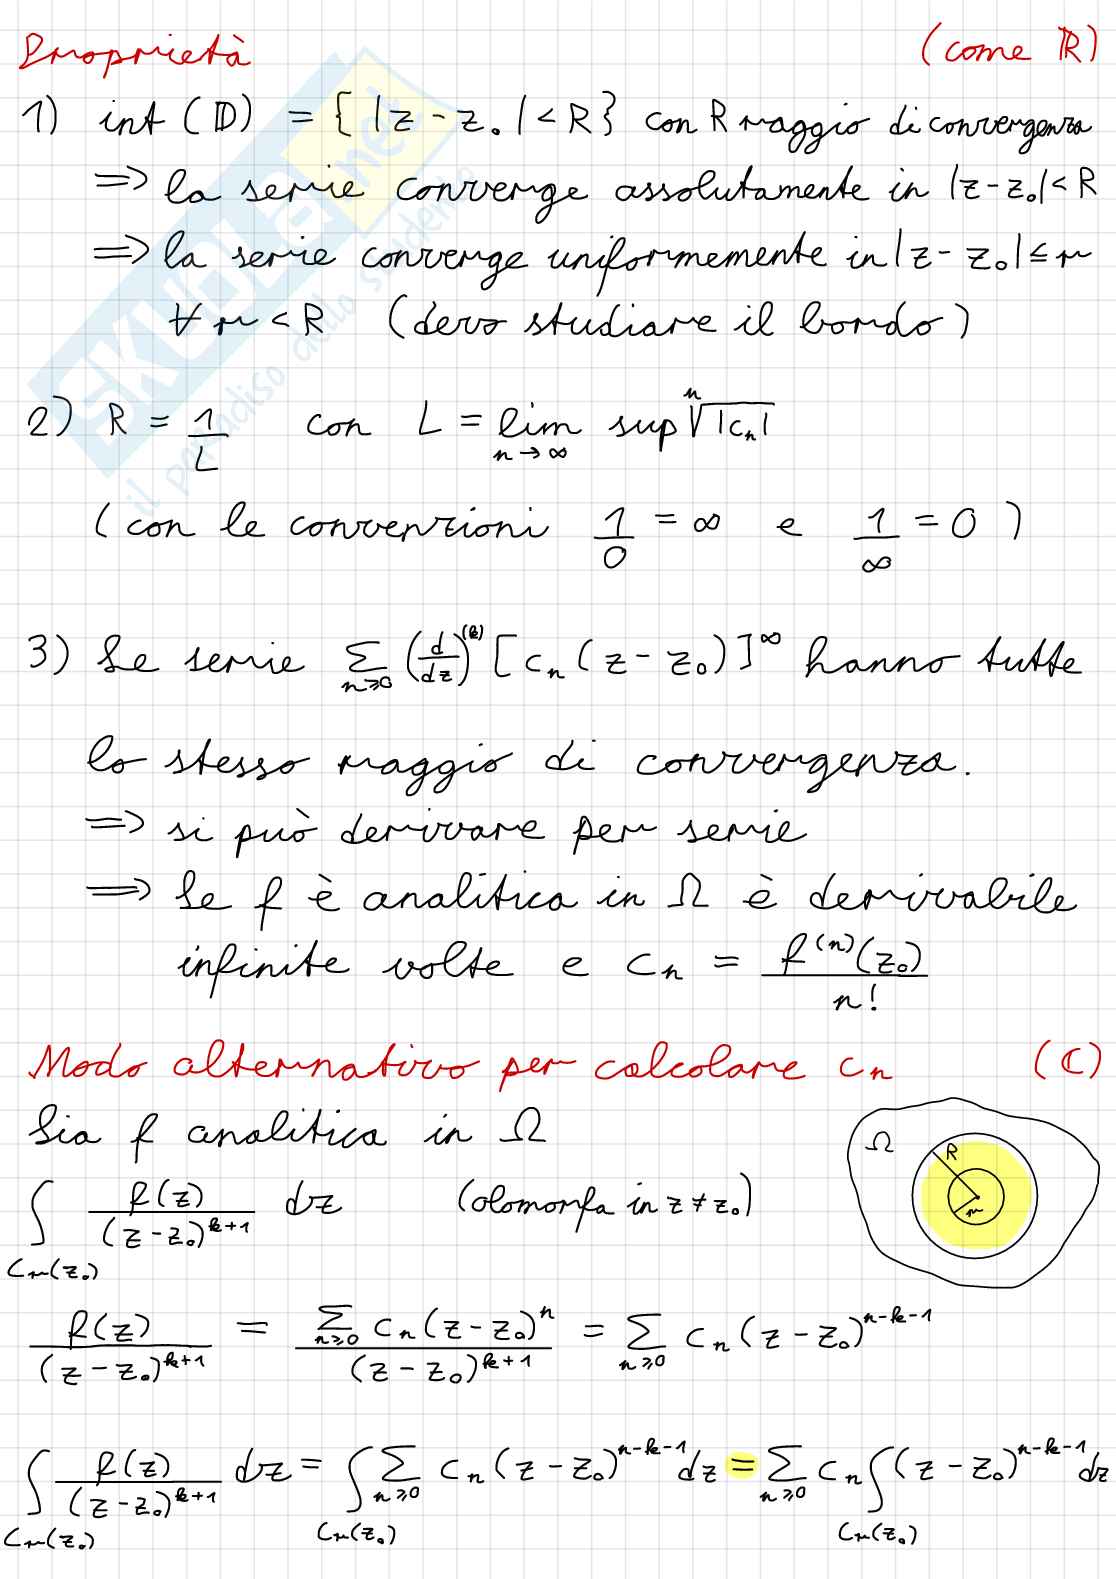 Proprietà (come ℝ)
1) int (𝔻) = { |z - z₀| < R } con R raggio di convergenza
=> la serie converge assolutamente in |z-z₀| < R
=> la serie converge uniformemente in |z - z₀| ≤ r
∀ r < R (devo studiare il bordo)
2) R = 1/L con L = lim_{n→∞} sup ⁿ√|cₙ|
(con le convenzioni 1/0 = ∞ e 1/∞ = 0)
3) Le serie ∑_{n≥0} (d/dz)^{(k)} [cₙ(z - z₀)]^∞ hanno tutte
lo stesso raggio di convergenza.
=> si può derivare per serie
=> Se f è analitica in Ω è derivabile
infinite volte e cₙ = f^{(n)}(z₀) / n!
Modo alternativo per calcolare cₙ (ℂ)
Sia f analitica in Ω
Ω R r
∫_{Cr(z₀)} f(z) / (z-z₀)^{k+1} dz (olomorfa in z ≠ z₀)
f(z) / (z-z₀)^{k+1} = ∑_{n≥0} cₙ(z-z₀)^n / (z-z₀)^{k+1} = ∑_{n≥0} cₙ(z-z₀)^{n-k-1}
∫_{Cr(z₀)} f(z) / (z-z₀)^{k+1} dz = ∫_{Cr(z₀)} ∑_{n≥0} cₙ(z-z₀)^{n-k-1} dz = ∑_{n≥0} cₙ ∫_{Cr(z₀)} (z-z₀)^{n-k-1} dz
SKUOLA.net
il paradiso dello studente